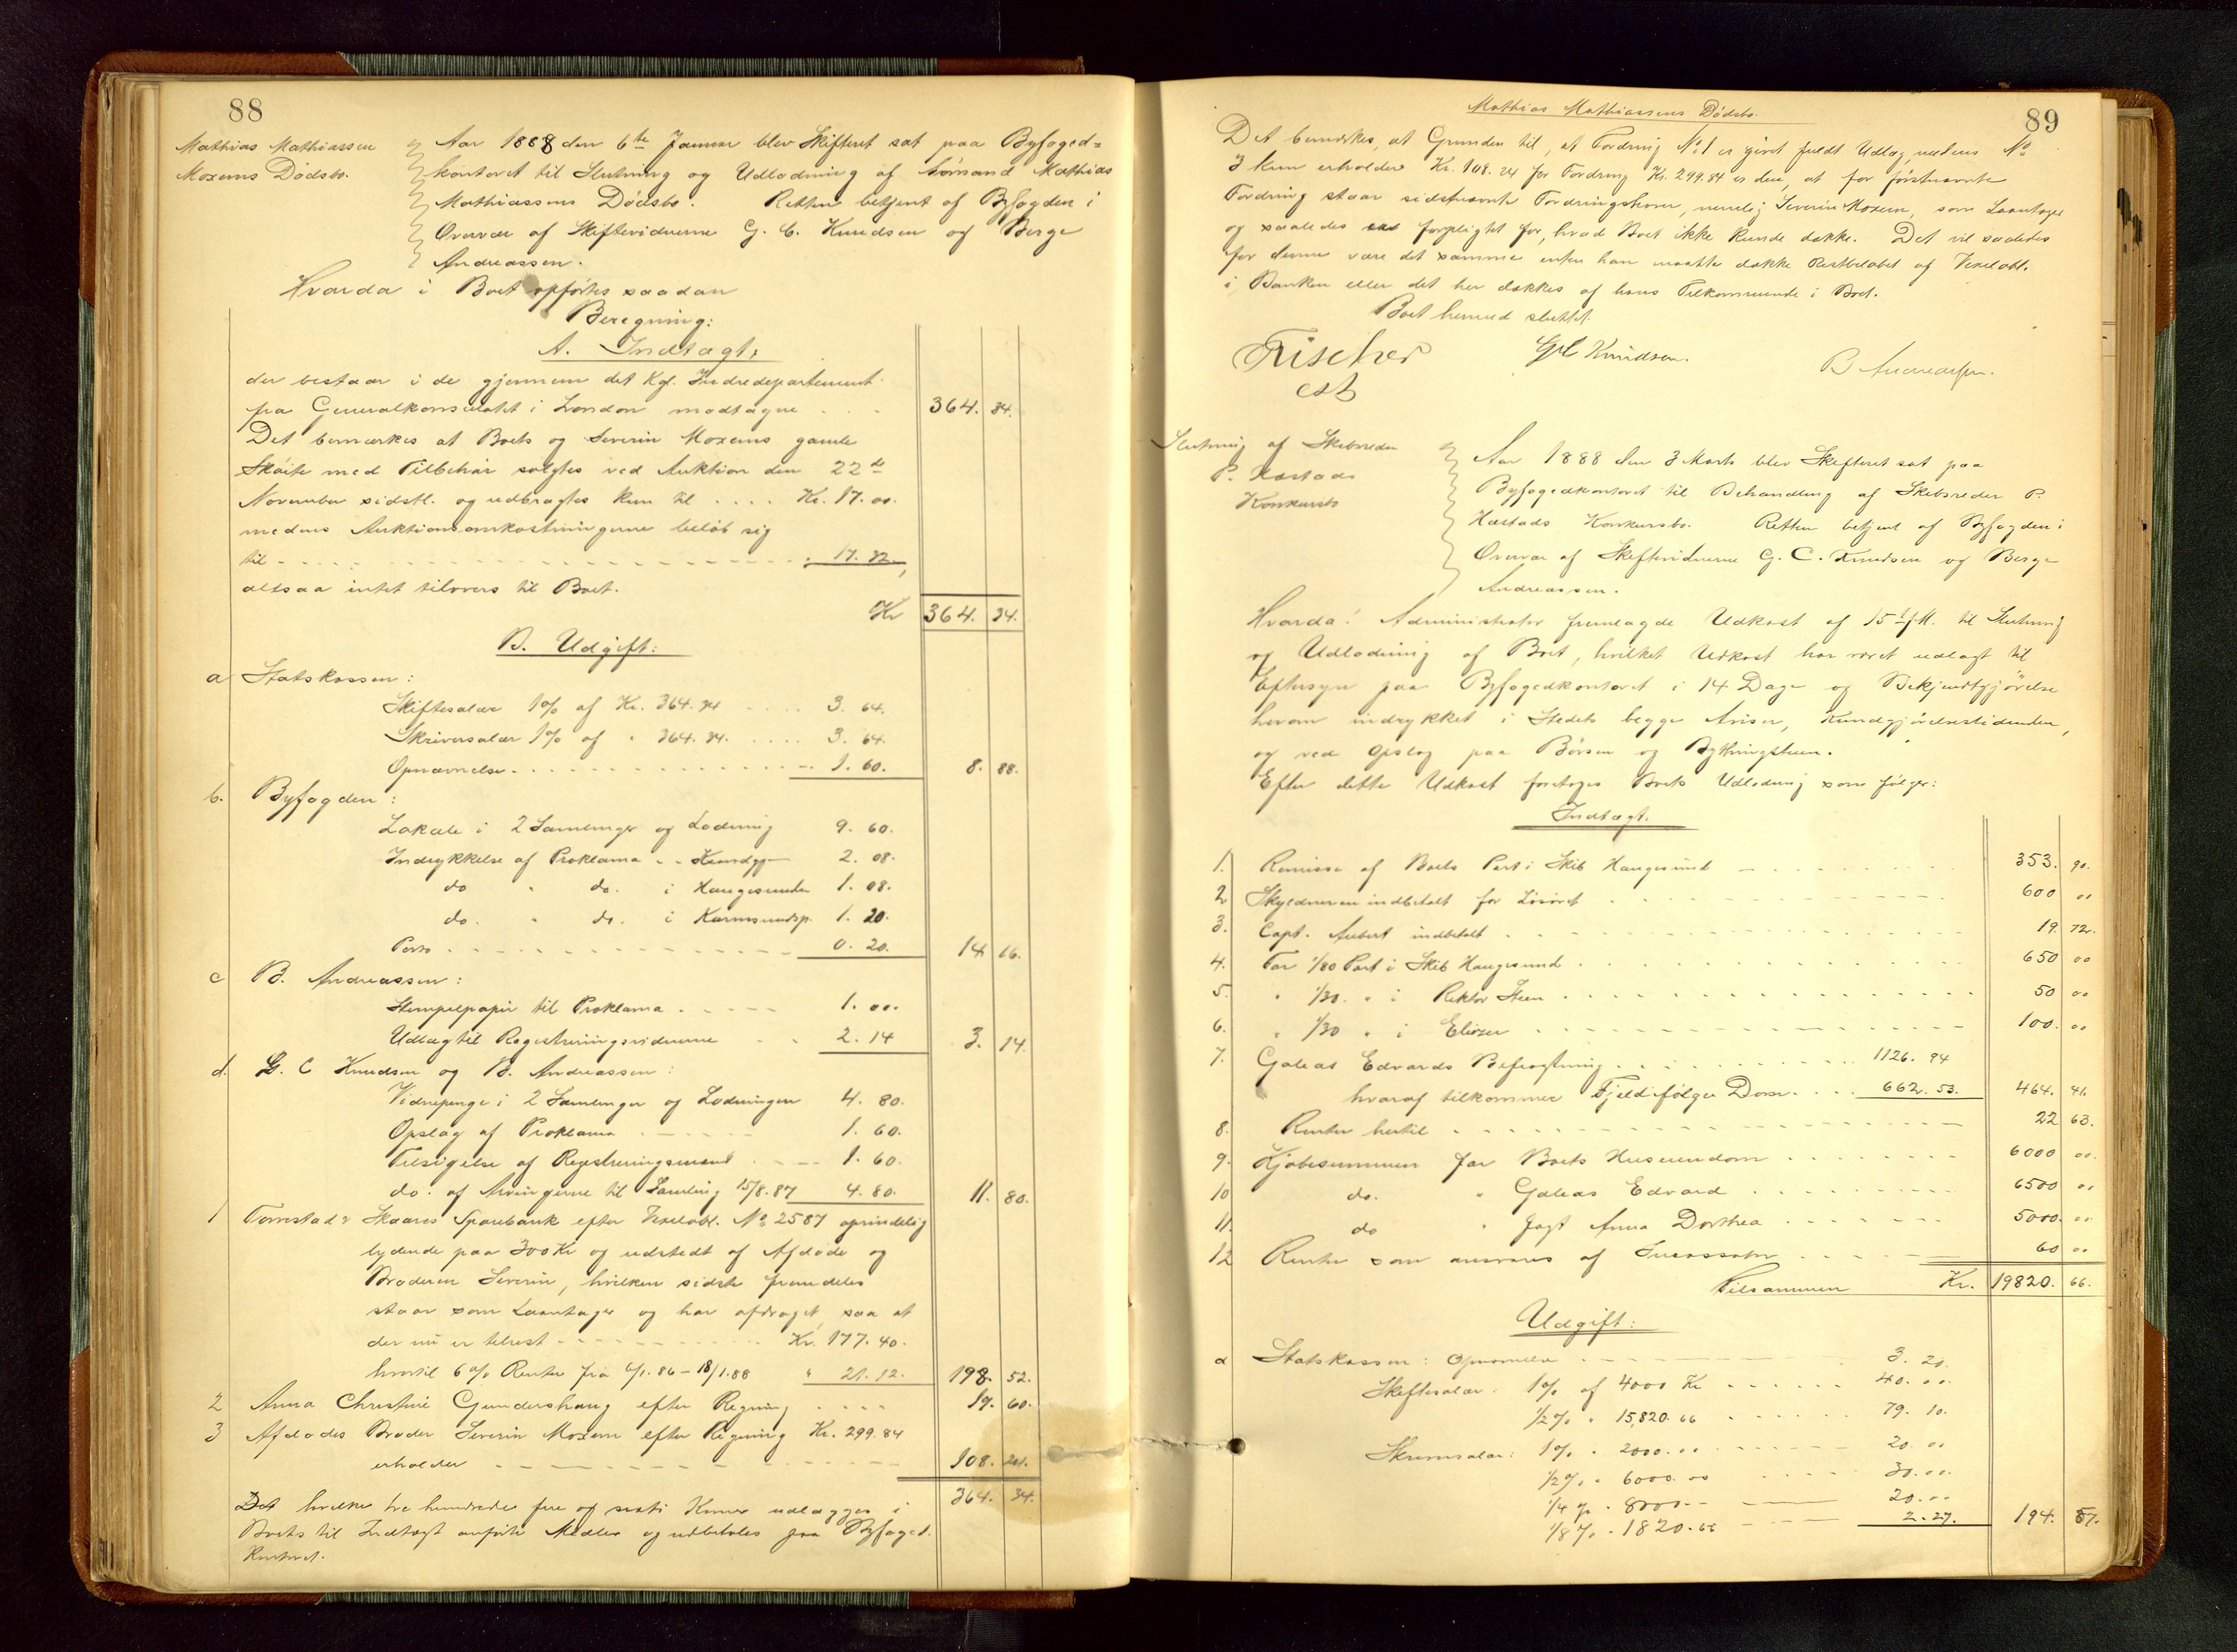 88
Mathias Mathiassen
Moxems Dødsbo.
Aar 1888 den 6te Januar blev Skifteret sat paa Byfoged=
kontoret til Slutning og Udlodning af Sømand Mathias
Mathiassens Dødsbo. Retten betjent af Byfogden i
Overvær af Skiftevidnerne G. C. Knudsen og Berge
Andreassen.
Hvorda i Boet opførtes saadan
Beregning:
A. Indtægt:
der bestaar i de gjennem det Kgl. Indredepartement
fra Generalkonsulatet i London modtagne . . . 364. 34.
Det bemærkes at Boets og Severin Moxems gamle
Skøite med Tilbehør solgtes ved Auktion den 22de
November sidstl. og udbragtes kun til . . . . Kr. 17. 00.
medens Auktionsomkostningerne beløb sig
til - - - - 17. 32,
altsaa intet tilovers til Boet.
Kr 364. 34.
B. Udgift:
a Statskassen:
Skiftesalær 1% af Kr. 364.34 . . . . 3. 64.
Skriversalær 1% af " 364. 34. . . . . 3. 64.
Opnævnelse . . . . 1. 60. 8. 88.
b. Byfogden:
Lokale i 2 Samlinger og Lodning 9. 60.
Indrykkelse af Proklama i Kundgj 2. 08.
do " do. i Haugesunder 1. 08.
do. " do. i Karmsundsp. 1. 20.
Porto . . . . 0. 20. 14 16.
c B. Andreassen:
Stempelpapir til Proklama . . . . 1. 00.
Udlæg til Registreringsvidnerne . . 2. 14 3. 14.
d. G. C Knudsen og B. Andreassen:
Vidnepenge i 2 Samlinger og Lodningen 4. 80.
Opslag af Proklama . . . . 1. 60.
Tilsigelse af Registreringsmænd . . . 1. 60.
do. af Arvingerne til Samling 15/8.87 4. 80. 11. 80.
1 Torvestad & Skaares Sparebank efter Vexelobl. No 2587 oprindelig
lydende paa 300 Kr og udstedt af Afdøde og
Broderen Severin, hvilken sidste fremdeles
staar som Laantager og har afdraget saa at
der nu er tilrest . . . . Kr. 177. 40.
hvortil 6% Renter fra 6/1.86 - 18/1.88 " 21. 12. 198. 52.
2 Anna Christine Gundershaug efter Regning . . . . 19. 60.
3 Afdødes Broder Severin Moxem efter Regning Kr. 299.84
erholder . . . . 108. 24.
364. 34.
Det hvilke tre hundrede fire og sexti Kroner udlægges i
Boets til Indtægt anførte Midler og udbetales paa Byfoged.
Kontoret.
Mathias Mathiassens Dødsbo.
89
Det bemærkes, at Grunden til, at Fordring No 1 er givet fuldt Udlæg, medens No
3 kun erholder Kr. 108.24 for Fordring Kr. 299.84 er den, at for førstnævnte
Fordring staar sidstnævnte Fordringshaver, nemlig Severin Moxem, som Laantager
og saaledes forpligtet for, hvad Boet ikke kunde dække. Det vil saaledes
for denne være det samme enten han maatte dække Restbeløbet af Vexelobl.
i Banken eller det her dækkes af hans Tilkommende i Boet.
Boet hermed sluttet.
Fischer
cst
GC Knudsen.
B Andreassen.
Slutning af Skibsreder
P. Hastads
Konkursbo
Aar 1888 den 3 Marts blev Skifteret sat paa
Byfogedkontoret til Behandling af Skibsreder P.
Hastads Konkursbo. Retten betjent af Byfogden i
Overvær af Skiftevidnerne G. C. Knudsen og Berge
Andreassen.
Hvorda: Administrator fremlagde Udkast af 15de f.M. til Slutning
og Udlodning af Boet, hvilket Udkast har været udlagt til
Eftersyn paa Byfogedkontoret i 14 Dage og Bekjendtgjørelse
herom indrykket i Stedets begge Aviser, Kundgjørelsestidenden,
og ved Opslag paa Børsen og Bythingstuen.
Efter dette Udkast foretoges Boets Udlodning som følger:
Indtægt.
1. Remisse af Boets Part i Skib Haugesund . . . . 353. 90.
2 Skyldneren indbetalt for Løsøret . . . . 600 00
3. Capt. Aubert indbetalt . . . . 19. 72.
4. For 1/80 Part i Skib Haugesund . . . . 650 00
5. " 1/30. " i Rektor Steen . . . . 50 00
6. " 1/30 " i Eliezer . . . . 100. 00
7. Galeas Edvards Befragtning . . . . 1126. 94
hvoraf tilkommer Fjeld ifølge Dom . . . . 662. 53. 464. 41.
8. Renter hertil . . . . 22 63.
9. Kjøbesummen for Boets Huseiendom . . . . 6000 00.
10 do. " Galeas Edvard . . . . 6500 00
11. do " Jagt Anna Dorthea . . . . 5000. 00
12 Renter som ansvares af Incassator . . . . 60 00
Tilsammen Kr. 19820. 66.
Udgift:
a Statskassen: Opnævnelse . . . . 3. 20.
Skiftesalær: 1% af 4000 Kr . . . . 40. 00.
1/2% " 15,820.66 . . . . 79. 10.
Skriversalær: 1% " 2000.00 . . . . 20. 00
1/2% " 6000.00 . . . . 30. 00.
1/4 % " 8000.- . . . . 20. 00
1/8% " 1820.66 . . . . 2. 27. 194. 57.